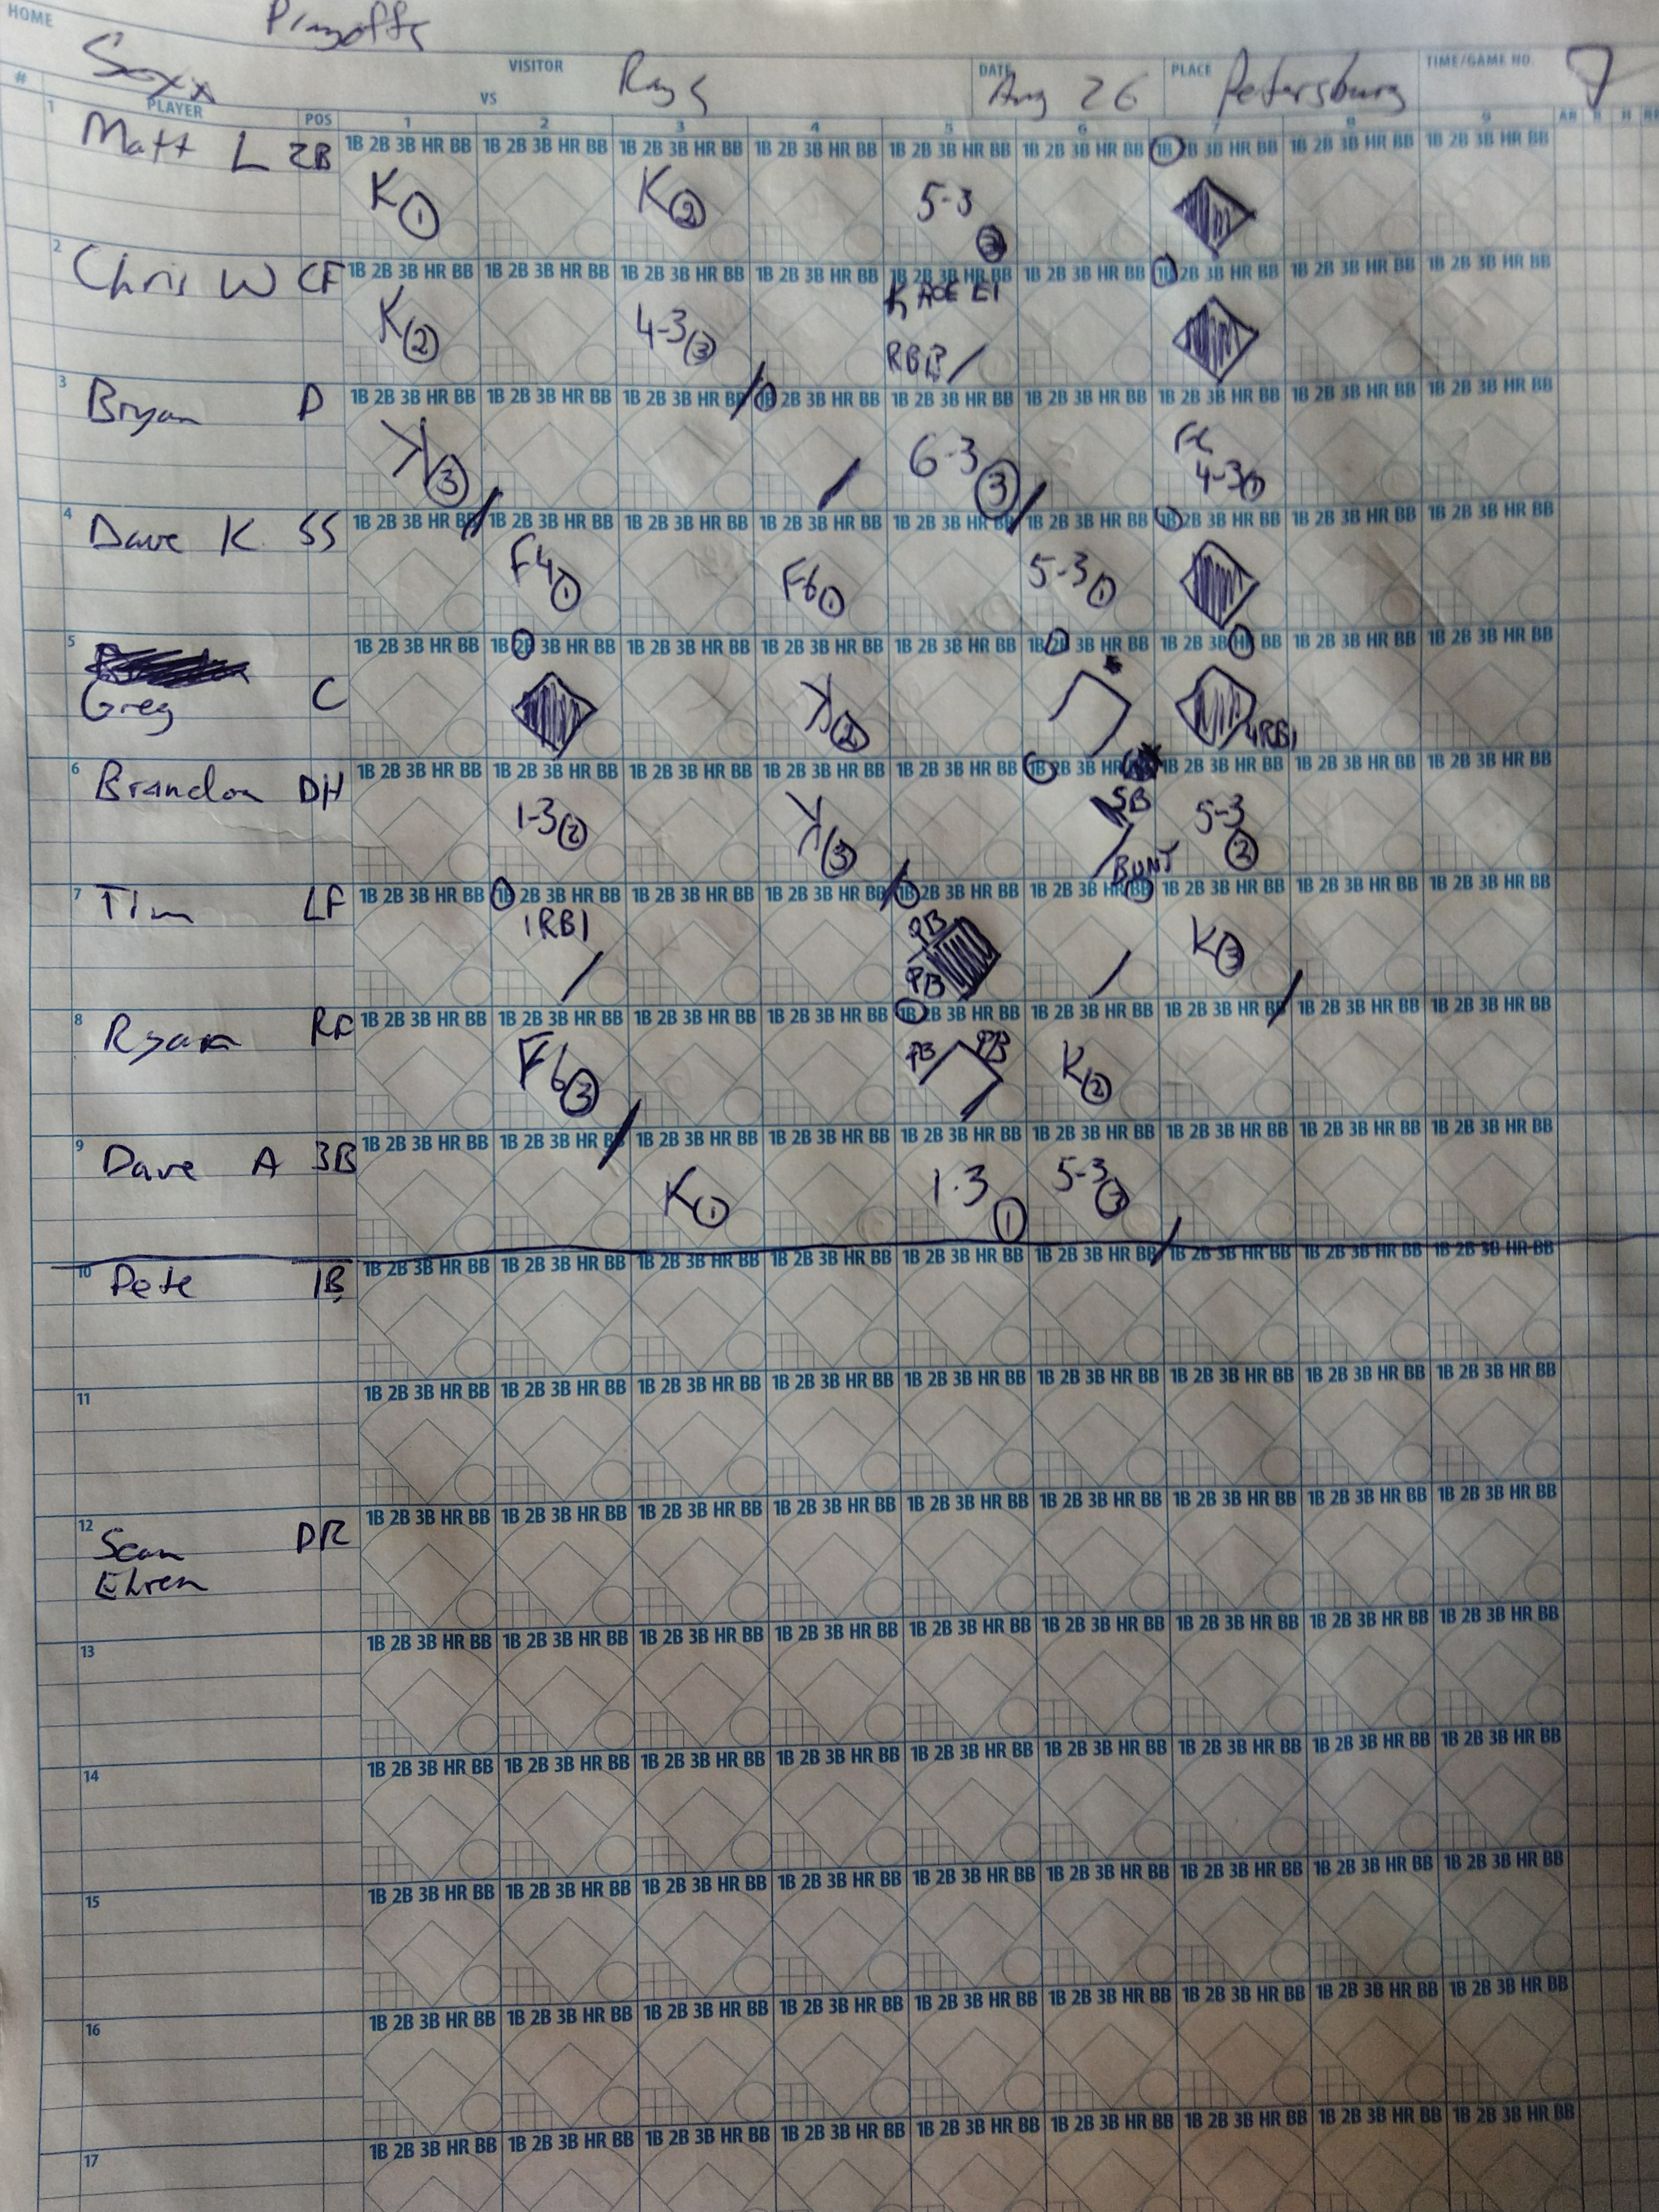 HOME
Playoffs
Soxx
VISITOR
VS
Rays
DATE
Aug 26
PLACE
Petersburg
TIME/GAME NO.
7
# PLAYER POS 1 2 3 4 5 6 7 8 9 AB R H
1 Matt L 2B
1B 2B 3B HR BB 1B 2B 3B HR BB 1B 2B 3B HR BB 1B 2B 3B HR BB 1B 2B 3B HR BB 1B 2B 3B HR BB 1B 2B 3B HR BB 1B 2B 3B HR BB 1B 2B 3B HR BB
K 1 K 2 5-3 2
2 Chris W CF
1B 2B 3B HR BB 1B 2B 3B HR BB 1B 2B 3B HR BB 1B 2B 3B HR BB 1B 2B 3B HR BB 1B 2B 3B HR BB 1B 2B 3B HR BB 1B 2B 3B HR BB 1B 2B 3B HR BB
K 2 4-3 3 E1
RBI
3 Bryan P
1B 2B 3B HR BB 1B 2B 3B HR BB 1B 2B 3B HR BB 1B 2B 3B HR BB 1B 2B 3B HR BB 1B 2B 3B HR BB 1B 2B 3B HR BB 1B 2B 3B HR BB 1B 2B 3B HR BB
K 3 6-3 3 FC
4-3 1
4 Dave K SS
1B 2B 3B HR BB 1B 2B 3B HR BB 1B 2B 3B HR BB 1B 2B 3B HR BB 1B 2B 3B HR BB 1B 2B 3B HR BB 1B 2B 3B HR BB 1B 2B 3B HR BB 1B 2B 3B HR BB
F4 1 F6 1 5-3 1
5 Greg C
1B 2B 3B HR BB 1B 2B 3B HR BB 1B 2B 3B HR BB 1B 2B 3B HR BB 1B 2B 3B HR BB 1B 2B 3B HR BB 1B 2B 3B HR BB 1B 2B 3B HR BB 1B 2B 3B HR BB
K 2 4RBI
6 Brandon DH
1B 2B 3B HR BB 1B 2B 3B HR BB 1B 2B 3B HR BB 1B 2B 3B HR BB 1B 2B 3B HR BB 1B 2B 3B HR 1B 2B 3B HR BB 1B 2B 3B HR BB 1B 2B 3B HR BB
1-3 2 K 3 SB 5-3 2
BUNT
7 Tim LF
1B 2B 3B HR BB 1B 2B 3B HR BB 1B 2B 3B HR BB 1B 2B 3B HR BB 1B 2B 3B HR BB 1B 2B 3B HR BB 1B 2B 3B HR BB 1B 2B 3B HR BB 1B 2B 3B HR BB
1RBI PB K 3
PB
8 Ryan RF
1B 2B 3B HR BB 1B 2B 3B HR BB 1B 2B 3B HR BB 1B 2B 3B HR BB 1B 2B 3B HR BB 1B 2B 3B HR BB 1B 2B 3B HR BB 1B 2B 3B HR BB 1B 2B 3B HR BB
F6 3 PB PB K 2
9 Dave A 3B
1B 2B 3B HR BB 1B 2B 3B HR BB 1B 2B 3B HR BB 1B 2B 3B HR BB 1B 2B 3B HR BB 1B 2B 3B HR BB 1B 2B 3B HR BB 1B 2B 3B HR BB 1B 2B 3B HR BB
K 1 1-3 1 5-3 3
10 Pete 1B
1B 2B 3B HR BB 1B 2B 3B HR BB 1B 2B 3B HR BB 1B 2B 3B HR BB 1B 2B 3B HR BB 1B 2B 3B HR BB 1B 2B 3B HR BB 1B 2B 3B HR BB 1B 2B 3B HR BB
11
1B 2B 3B HR BB 1B 2B 3B HR BB 1B 2B 3B HR BB 1B 2B 3B HR BB 1B 2B 3B HR BB 1B 2B 3B HR BB 1B 2B 3B HR BB 1B 2B 3B HR BB 1B 2B 3B HR BB
12 Sean DR
Ehren
1B 2B 3B HR BB 1B 2B 3B HR BB 1B 2B 3B HR BB 1B 2B 3B HR BB 1B 2B 3B HR BB 1B 2B 3B HR BB 1B 2B 3B HR BB 1B 2B 3B HR BB 1B 2B 3B HR BB
13
1B 2B 3B HR BB 1B 2B 3B HR BB 1B 2B 3B HR BB 1B 2B 3B HR BB 1B 2B 3B HR BB 1B 2B 3B HR BB 1B 2B 3B HR BB 1B 2B 3B HR BB 1B 2B 3B HR BB
14
1B 2B 3B HR BB 1B 2B 3B HR BB 1B 2B 3B HR BB 1B 2B 3B HR BB 1B 2B 3B HR BB 1B 2B 3B HR BB 1B 2B 3B HR BB 1B 2B 3B HR BB 1B 2B 3B HR BB
15
1B 2B 3B HR BB 1B 2B 3B HR BB 1B 2B 3B HR BB 1B 2B 3B HR BB 1B 2B 3B HR BB 1B 2B 3B HR BB 1B 2B 3B HR BB 1B 2B 3B HR BB 1B 2B 3B HR BB
16
1B 2B 3B HR BB 1B 2B 3B HR BB 1B 2B 3B HR BB 1B 2B 3B HR BB 1B 2B 3B HR BB 1B 2B 3B HR BB 1B 2B 3B HR BB 1B 2B 3B HR BB 1B 2B 3B HR BB
17
1B 2B 3B HR BB 1B 2B 3B HR BB 1B 2B 3B HR BB 1B 2B 3B HR BB 1B 2B 3B HR BB 1B 2B 3B HR BB 1B 2B 3B HR BB 1B 2B 3B HR BB 1B 2B 3B HR BB